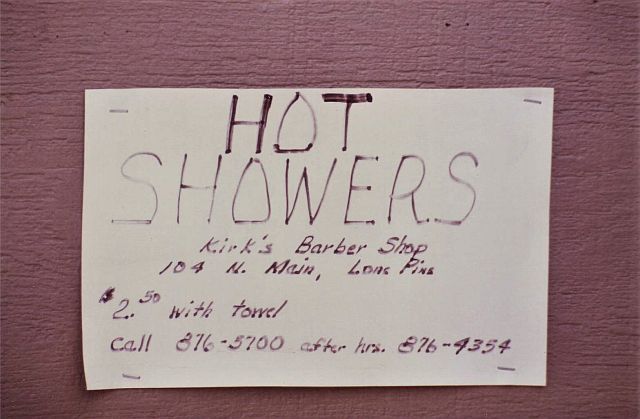 HOT
SHOWERS
Kirk's Barber Shop
104 N. Main, Lone Pine
$2.50 with towel
Call 876-5700 after hrs. 876-4354